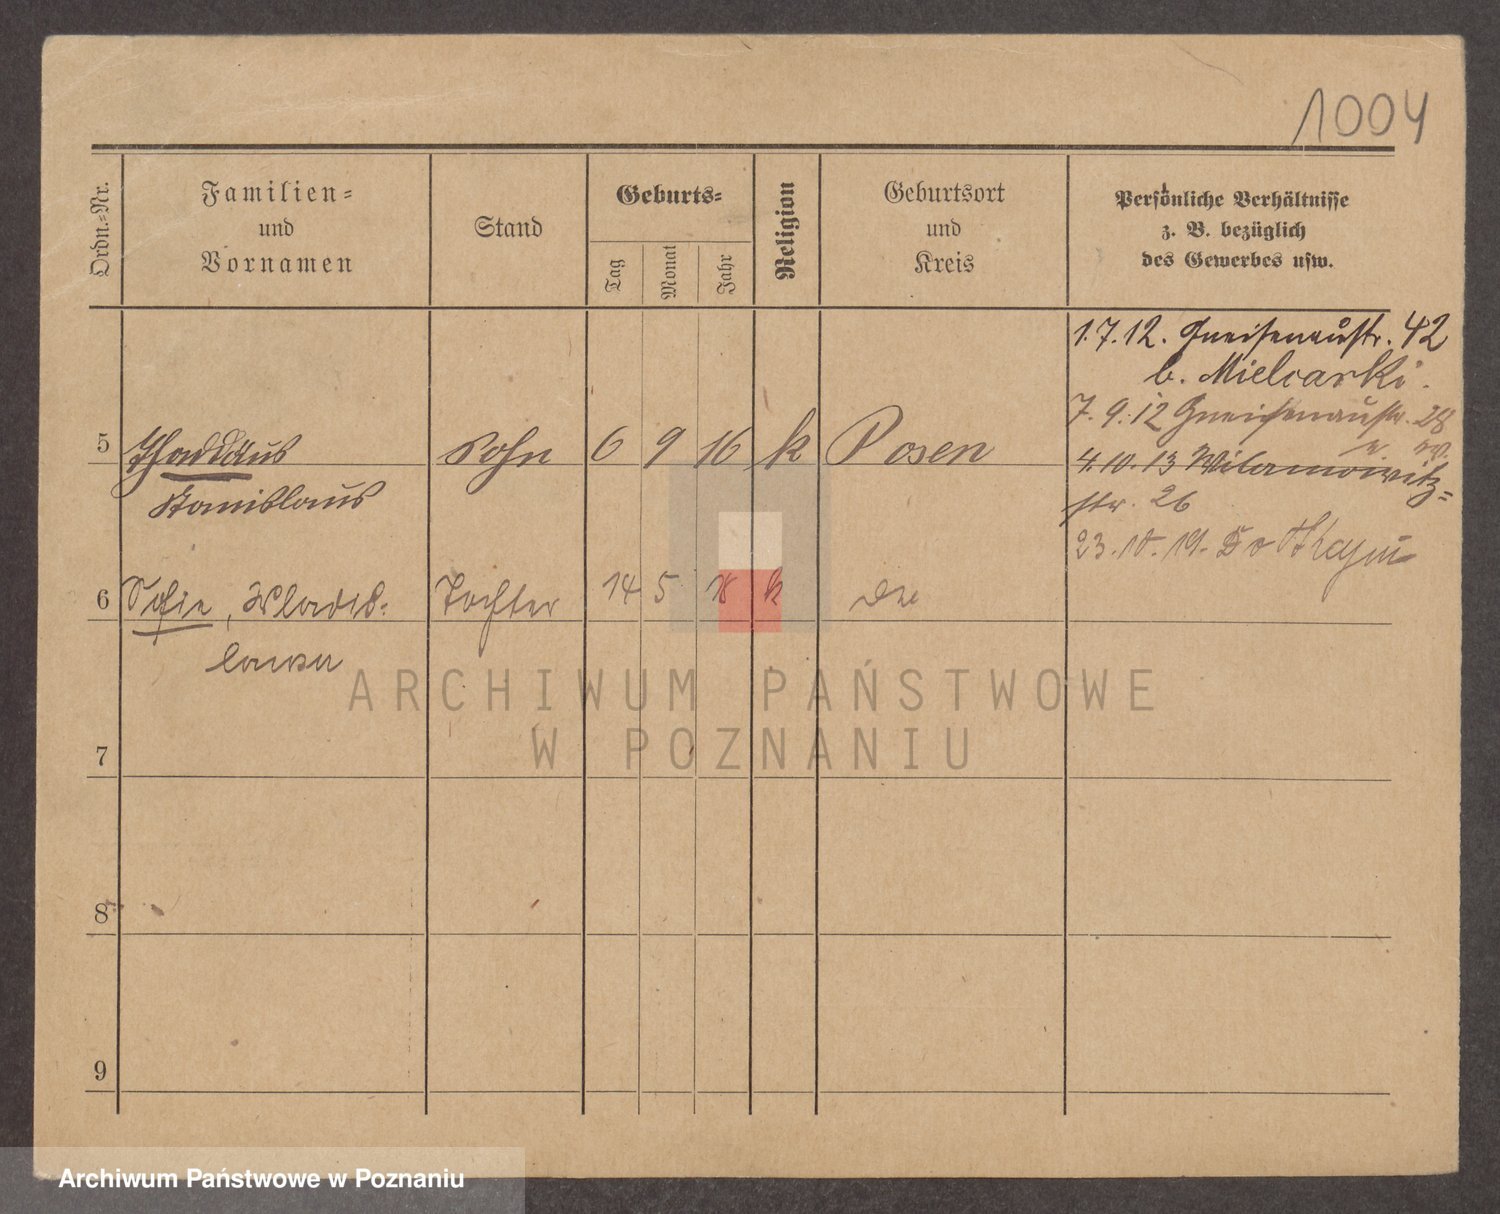 1004
Ordn.=Nr.
Familien=
und
Vornamen
Stand
Geburts=
Tag
Monat
Jahr
Religion
Geburtsort
und
Kreis
Persönliche Verhältnisse
z. B. bezüglich
des Gewerbes usw.
1.7.12. Gneisenaustr. 42
b. Mielcarski.
7.9.12 Gneisenaustr. 28
4.10.13 Wilamowitz=
str. 26
23.10.19.
5 Thaddäus Sohn 6 9 16 k Posen
Stanislaus
6 Sofie, Wladis- Tochter 14 5 18 k
lawa
7
8
9
ARCHIWUM PAŃSTWOWE
W POZNANIU
Archiwum Państwowe w Poznaniu